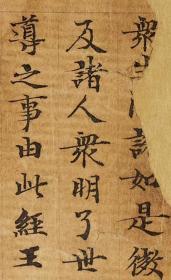 衆生說如是微
及諸人衆明了世
導之事由此經王